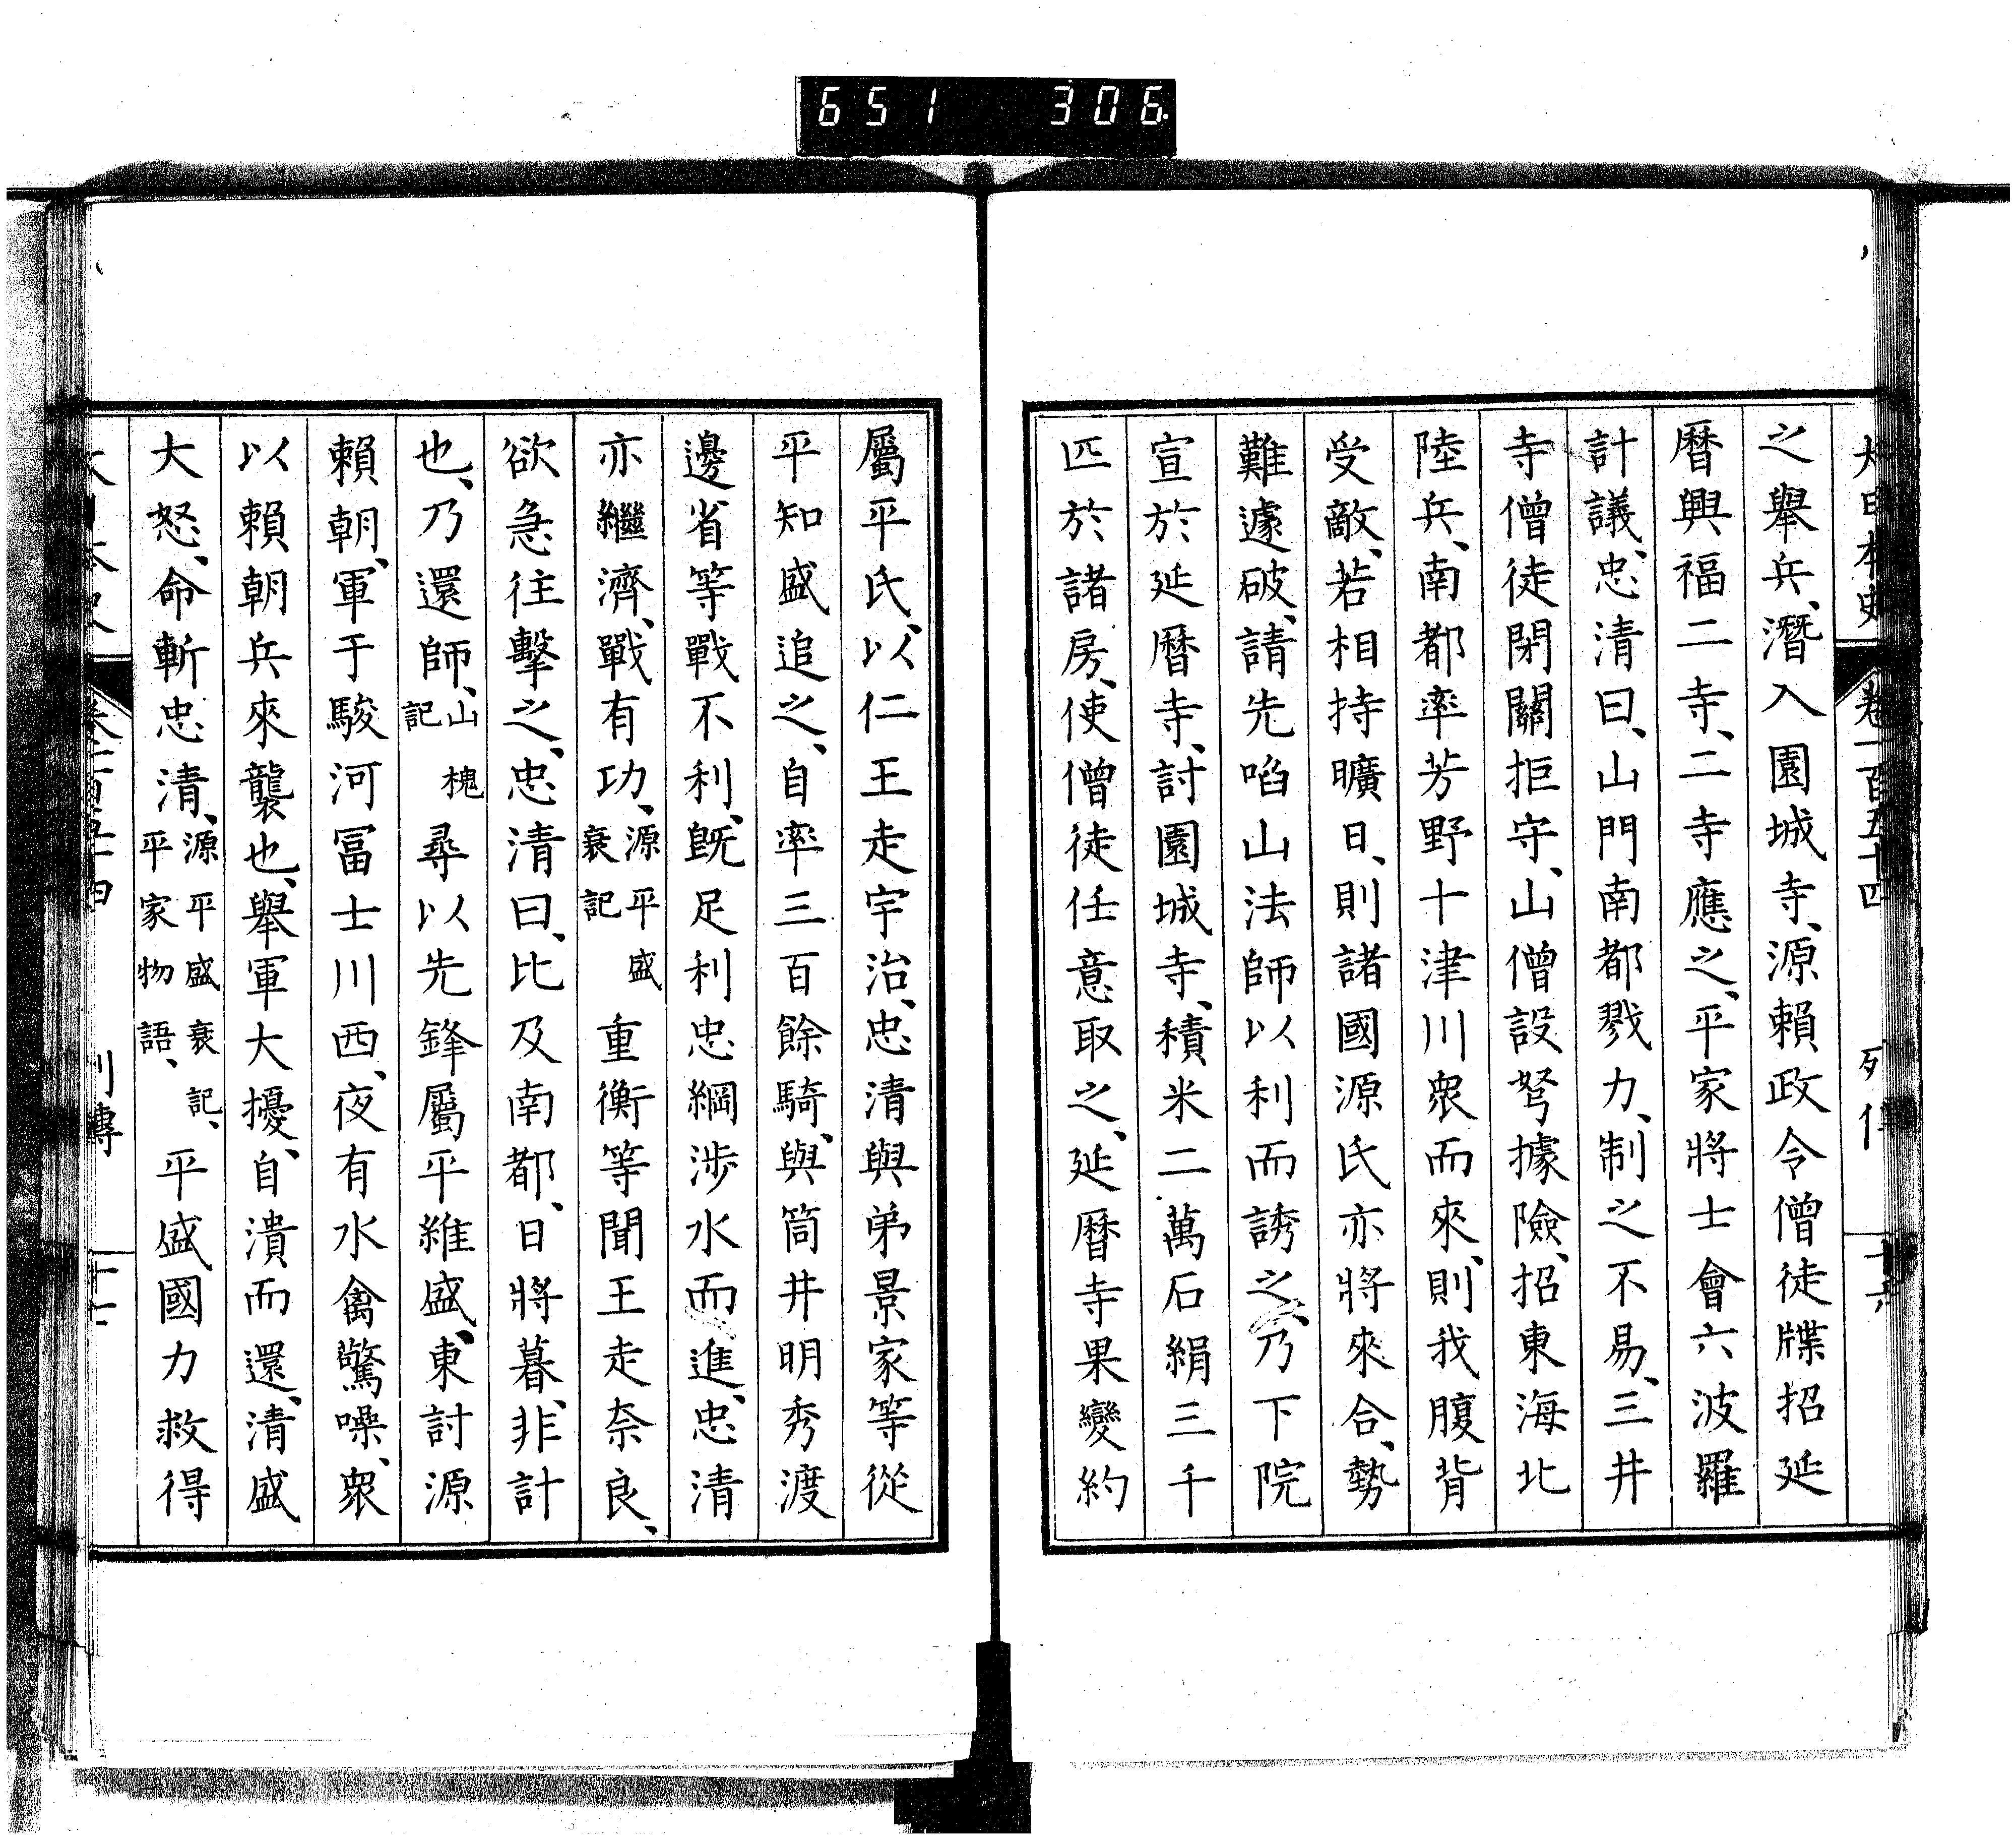 651 306
大日本史 卷一百五十四 列傳 十六
之舉兵、潛入園城寺、源賴政令僧徒牒招延
曆興福二寺、二寺應之、平家將士會六波羅
計議、忠清曰、山門南都戮力、制之不易、三井
寺僧徒閉關拒守、山僧設弩據險、招東海北
陸兵、南都率芳野十津川衆而來、則我腹背
受敵、若相持曠日、則諸國源氏亦將來合、勢
難遽破、請先啗山法師以利而誘之、乃下院
宣於延曆寺、討園城寺、積米二萬石絹三千
匹於諸房、使僧徒任意取之、延曆寺果變約
屬平氏、以仁王走宇治、忠清與弟景家等從
平知盛追之、自率三百餘騎、與筒井明秀渡
邊省等戰、不利、既足利忠綱涉水而進、忠清
亦繼濟、戰有功、源平盛衰記重衡等聞王走奈良、
欲急往擊之、忠清曰、比及南都、日將暮、非計
也、乃還師、山槐記尋以先鋒屬平維盛、東討源
賴朝、軍于駿河冨士川西、夜有水禽驚噪、衆
以賴朝兵來襲也、舉軍大擾、自潰而還、清盛
大怒、命斬忠清、源平盛衰記、平家物語、平盛國力救得
大日本史 卷一百五十四 列傳 十七